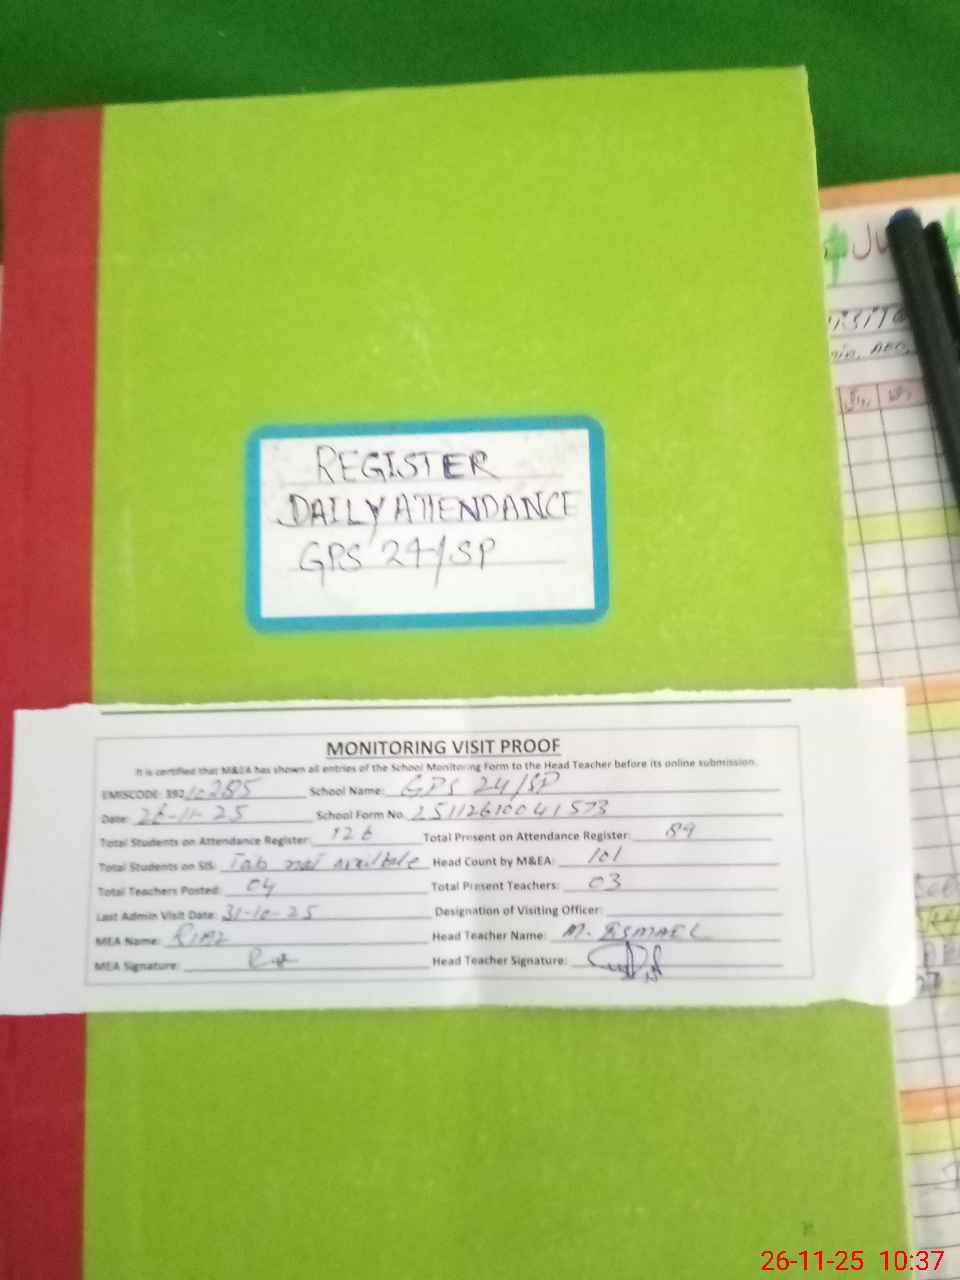 REGISTER
DAILY ATTENDANCE
GPS 24/SP
MONITORING VISIT PROOF
It is certified that M&EA has shown all entries of the School Monitoring Form to the Head Teacher before its online submission.
EMISCODE: 392 10285 School Name: GPS 24/SP
Date: 26-11-25 School Form No. 25112610041573
Total Students on Attendance Register: 126 Total Present on Attendance Register: 89
Total Students on SIS: Tab not availble Head Count by M&EA: 101
Total Teachers Posted: 04 Total Present Teachers: 03
Last Admin Visit Date: 31-10-25 Designation of Visiting Officer:
MEA Name: RIAZ Head Teacher Name: M.
MEA Signature: Head Teacher Signature:
26-11-25 10:37